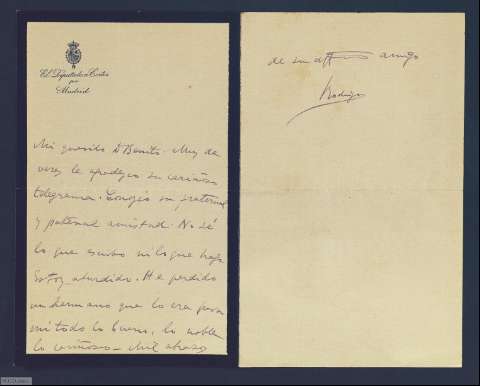 El Diputado a Cortes
por
Madrid
Mi querido D Benito. Muy de
veras le agradezco su cariñoso
telegrama. Conozco su fraternal
y paternal amistad. No sé
lo que escribo ni lo que hago
Estoy aturdido. He perdido
un hermano que lo era para
mi todo lo bueno, lo noble
lo cariñoso - Mil abrazos
de su afmo amigo
Rodrigo